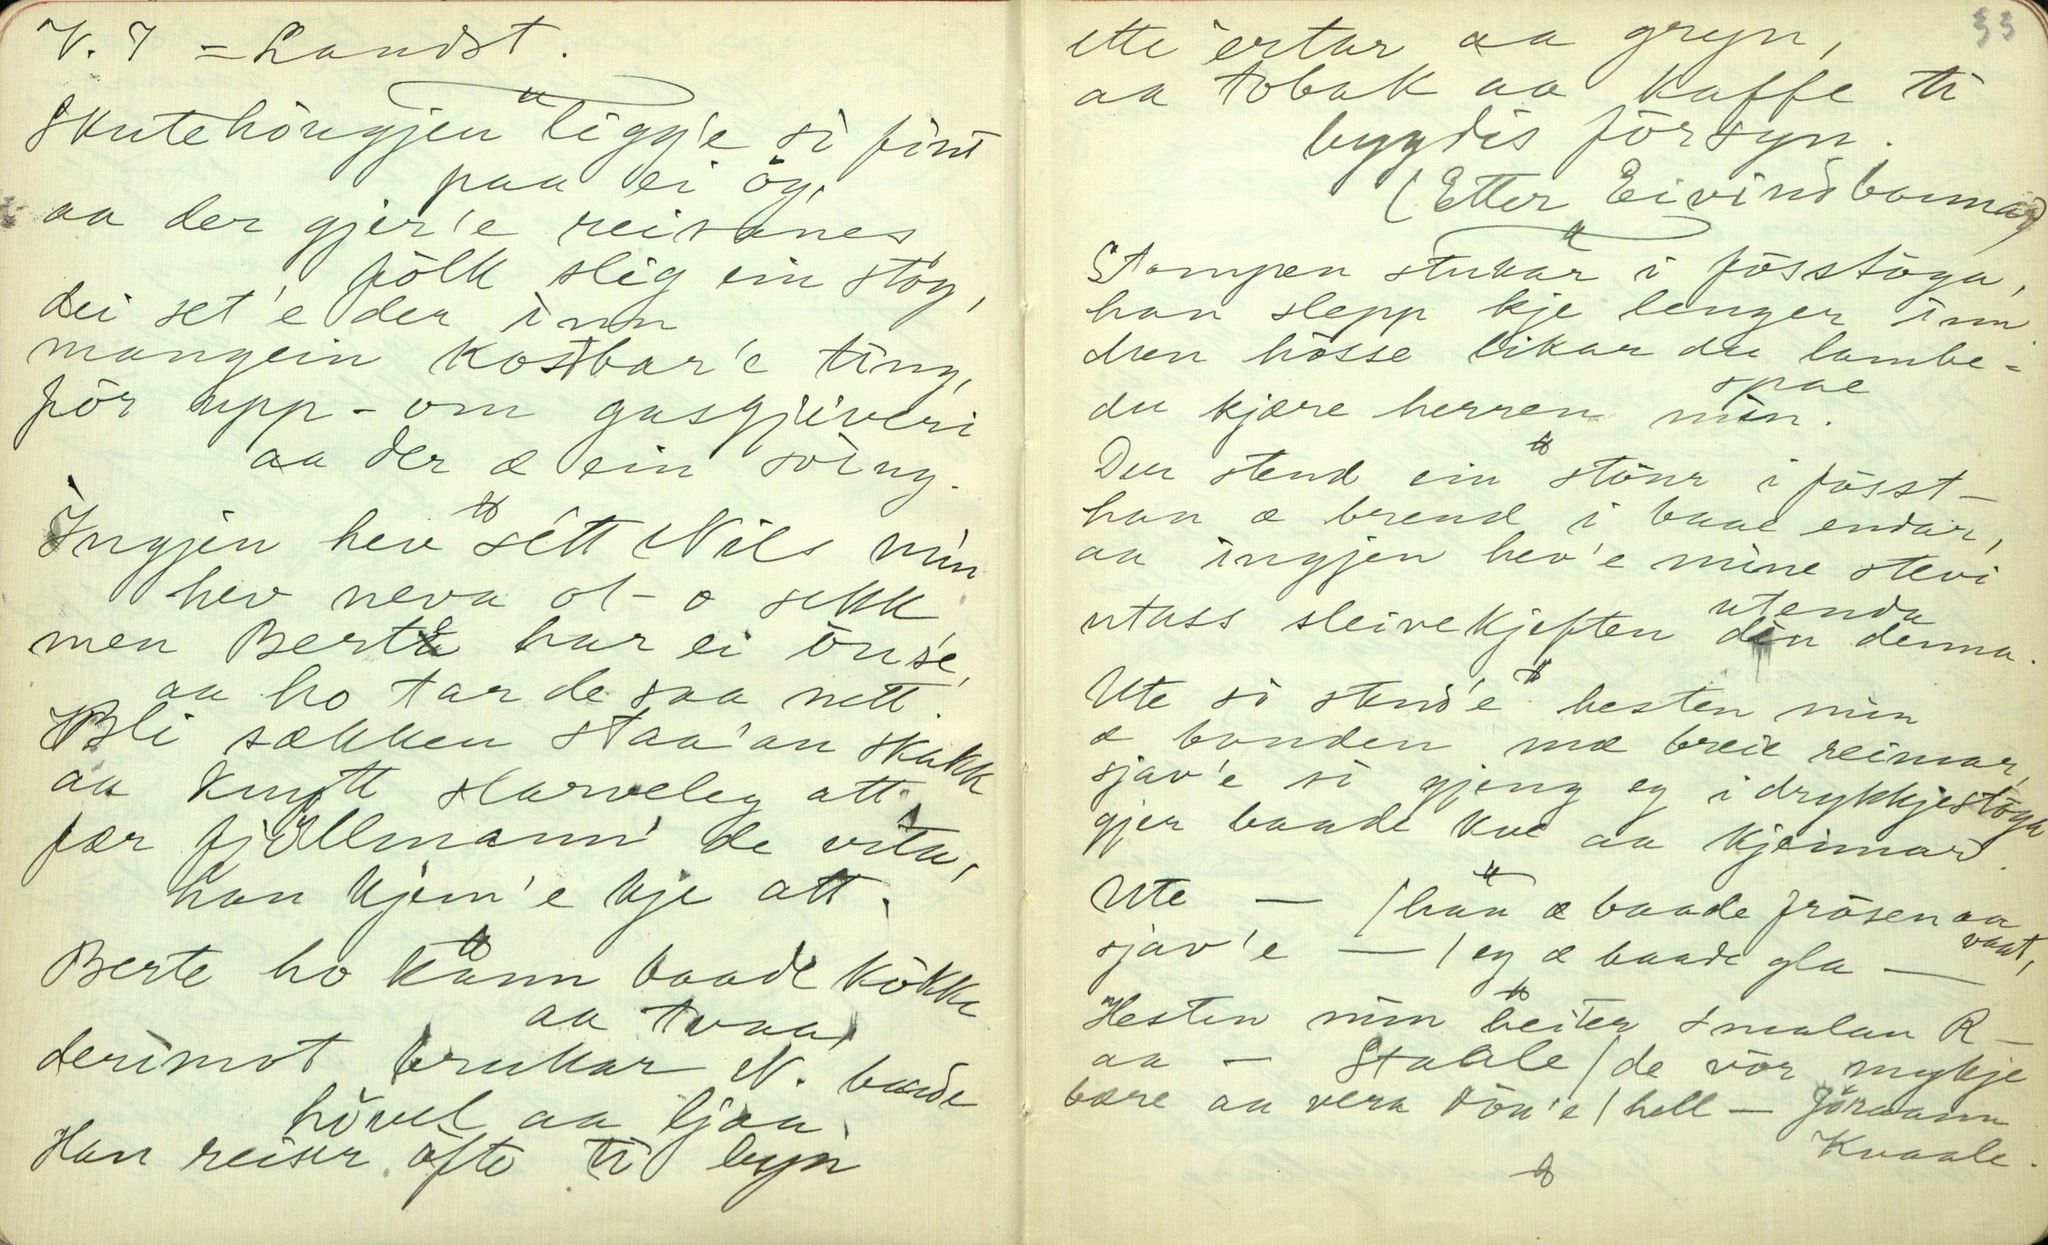 V. 7 = Landst.
Skutehöngjen ligg'e si fint
paa ei öy,
aa der gjer'e reisanes
fölk slig ein stög,
dei set'e der inn
mangein kostbar'e ting,
för upp-om gasgjiveri
aa der æ ein sving.
Ingjen hev sétt Nils min
hev neva ol- o sekk,
men Berte har ei önse,
aa ho tar de saa nett.
Bli sækken staa'an skakk
aa knytt slarveleg att,
fær fjøllmann' de vita,
han kjem'e kje att.
Berte ho kann baade kökke
aa tvaa,
derimot brukar N. baade
hövel aa ljaa
Han reiser ofte ti byn
33
ette ertar aa gryn,
aa tobak aa kaffe ti
bygdis försyn.
(Etter Eivind
Stampen stukar i fösstöga,
han slepp kje lenger inn
den hösse likar du lambe-
spae
du kjære herren min.
Der stend ein stönr i fösst-
han æ brend i baae endar,
aa ingjen hev'e mine stevi
utenda
utass sleivekjeften din denna.
Ute so stend'e hesten min
æ bonden mæ breie reimar,
sjav'e so gjeng eg i drykkjestöga
gjer baade kve aa kjeimar.
Ute — / han æ baade frösen aa
vaat,
sjav'e — / eg æ baade gla —
Hesten min heiter Smalan R—
aa — Staale / de vör mykje
bære aa vera döu'e / hell — Jöraann
Kvaale.